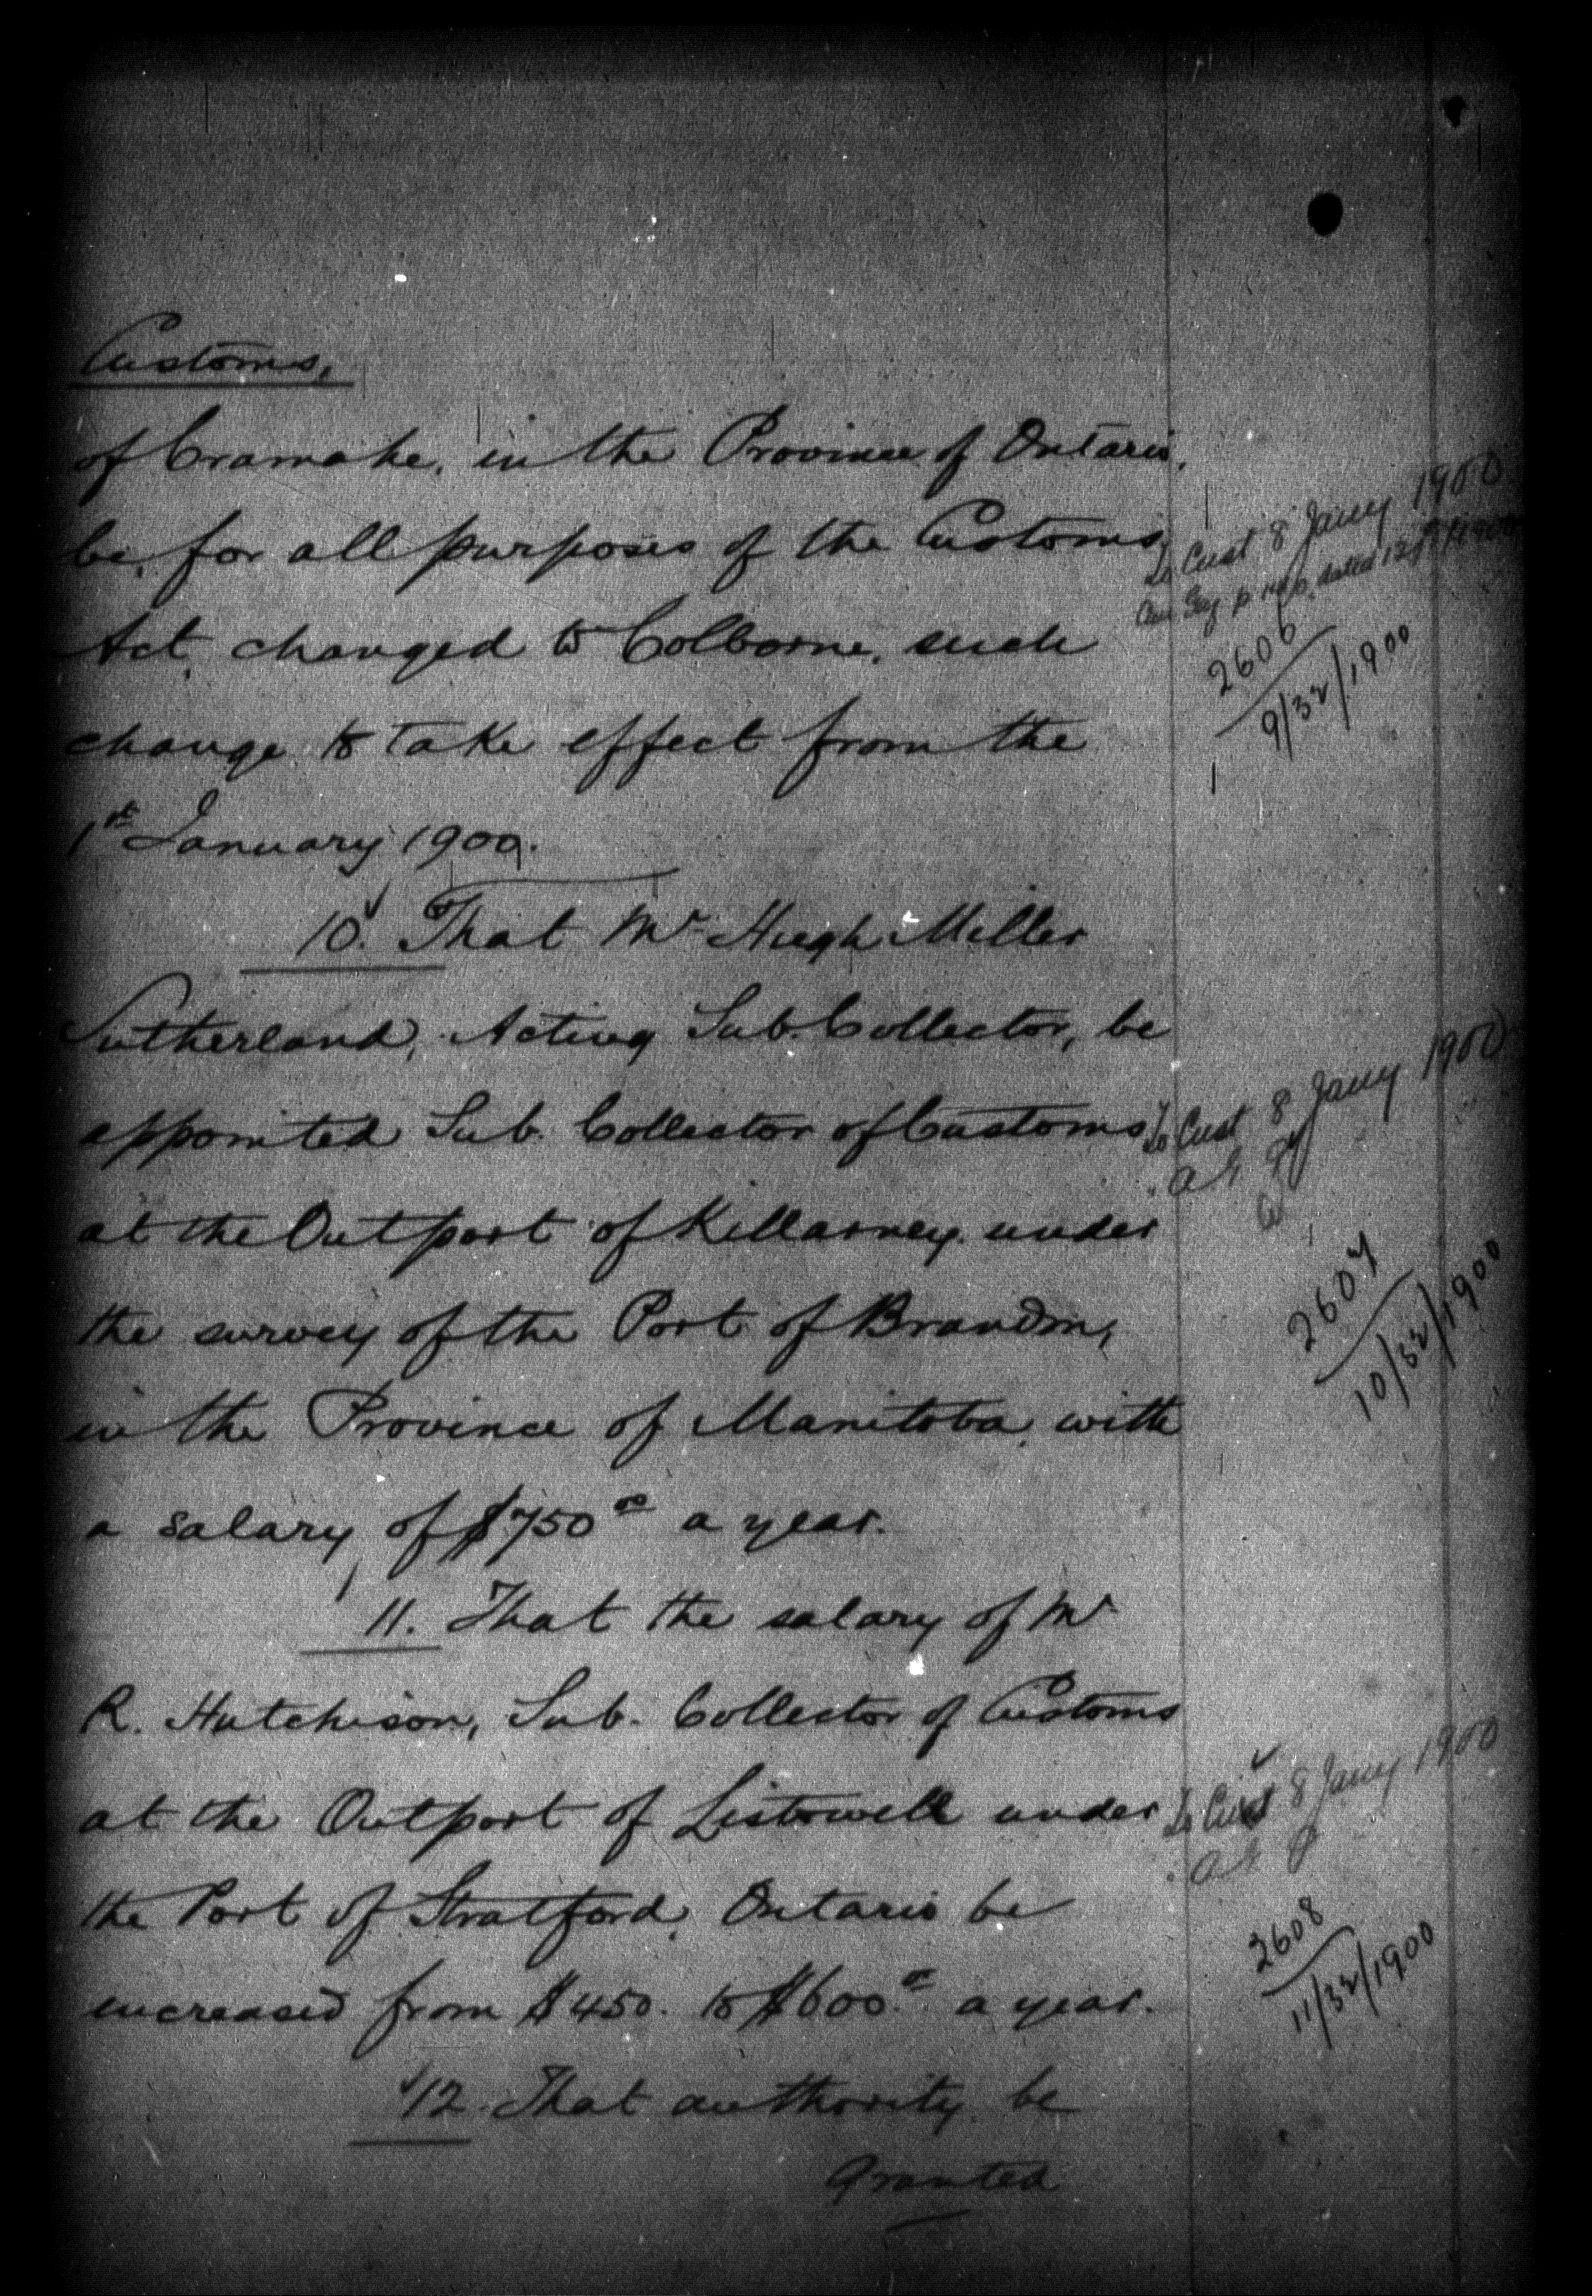 Customs,
of Cramahe, in the Province of Ontario,
be, for all purposes of the Customs
Act, changed to Colborne, such
change to take effect from the
1st January 1900.
10. That Mr Hugh Miller
Sutherland, Acting Sub. Collector, be
appointed Sub. Collector of Customs
at the Outport of Killarney under
the survey of the Port of Brandon,
in the Province of Manitoba, with
a salary of $750 00 a year.
11. That the salary of Mr
R. Hutchison, Sub. Collector of Customs
at the Outport of Listowell under
the Port of Stratford, Ontario be
increased from $450. to $600.00 a year.
12. That authority be
Granted
To Cust 8 Jany 1900
dated 12
2606
9/32/1900
To Cust 8 Jany 1900
A G
2607
10/32/1900
To Cust 8 Jany 1900
A G
2608
11/32/1900